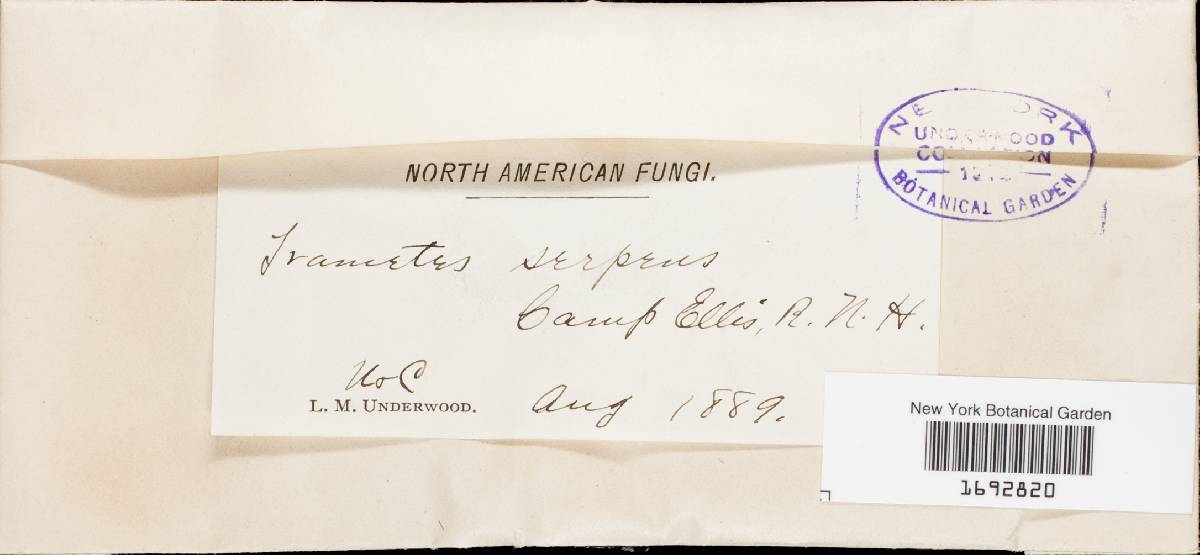 NEW YORK
UNDERWOOD
COLLECTION
BOTANICAL GARDEN
NORTH AMERICAN FUNGI.
Trametes serpens
Camp Ellis, R. N. H.
L. M. UNDERWOOD.
Aug 1889.
New York Botanical Garden
1692820